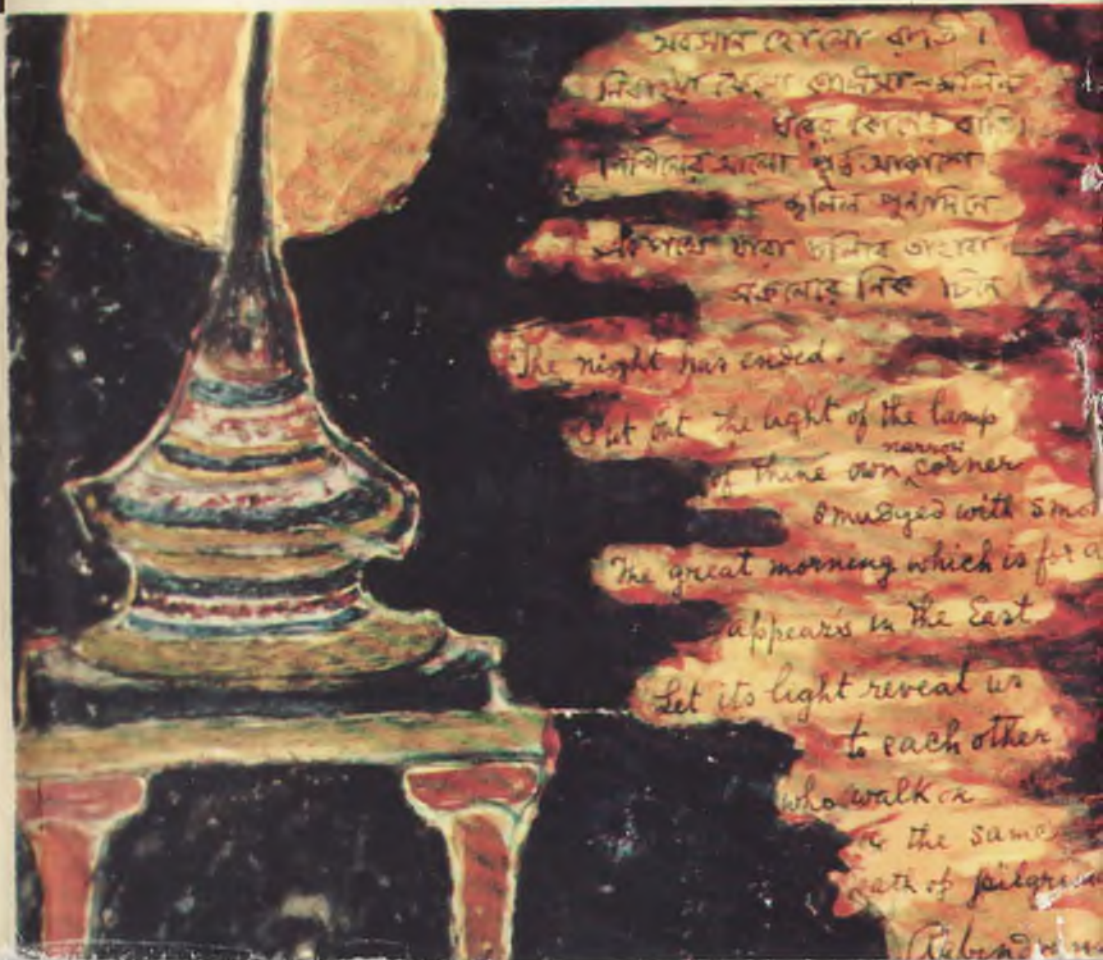 অবসান হোলো রাতি।
নিবাইয়া ফেলো কালিমা-মলিন
ঘরের কোণের বাতি।
নিখিলের আলো পূর্ব্ব আকাশে
জ্বলিল পুণ্যদিনে
একপথে যারা চলিবে তাহারা
সকলেরে নিক্ চিনে
The night has ended.
Put out the light of the lamp
of thine own narrow corner
smudged with smo
The great morning which is for a
appears in the East
Let its light reveal us
to each other
who walk on
the same
path of pilgrim
Rabindran